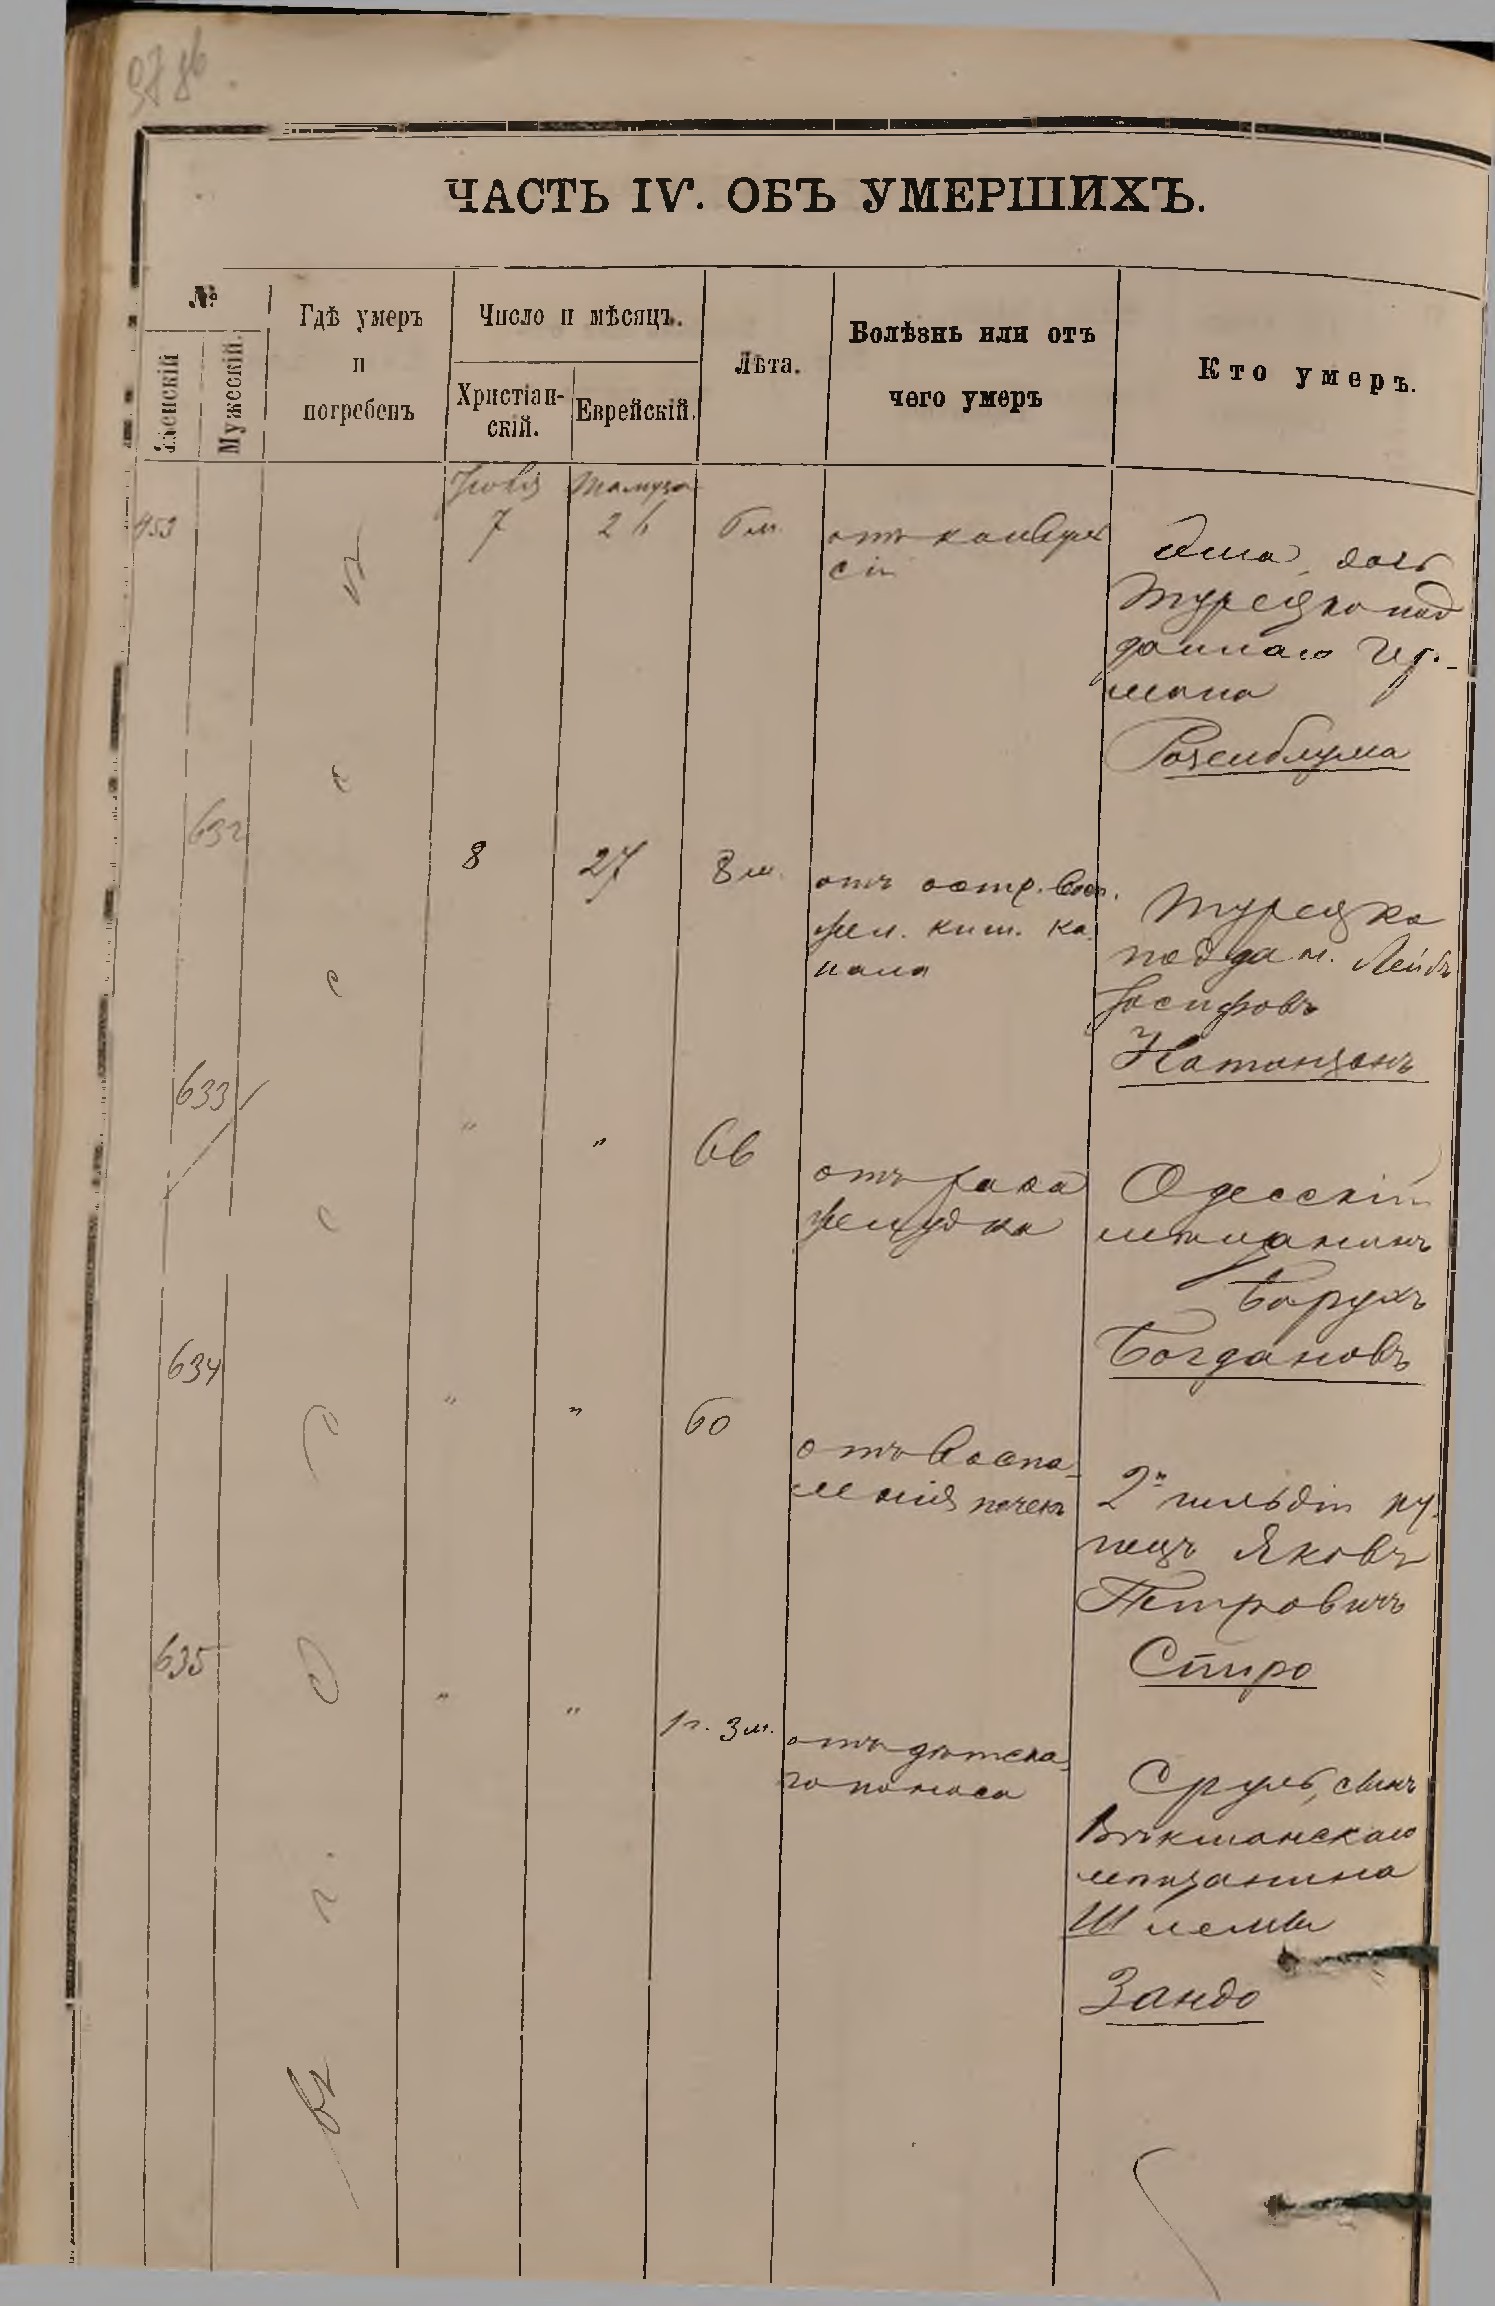 ЧАСТЬ IV. ОБЪ УМЕРШИХЪ.
№
Женскій
Мужескій.
Гдѣ умеръ
и
погребенъ
Число и мѣсяцъ.
Христіан-
скій.
Еврейскій.
Лѣта.
Болѣзнь или отъ
чего умеръ
Кто умеръ.
Іюля Тамуза
453
7
26
6 м.
отъ конвуль
сіи
дочь
Турецкопод
даннаго Гер-
мана
Розенблума
632
8
27
8 м.
отъ остр. Восп.
жел. киш. ка
нала
Турецко
поддан. Лейбъ
Іосифовъ
Натанзонъ
633
"
"
66
отъ рака
желудка
Одесскій
мѣщанинъ
Борухъ
Богдановъ
634
"
"
60
отъ Воспа-
ленія почекъ
2й гильдіи ку
пецъ Яковъ
Петровичъ
Спиро
635
"
"
1 г. 3 м.
отъ дѣтска-
го поноса
Сруль, сынъ
Векшанскаго
мѣщанина
Шлемы
Зандо
въ г. О д е с с ѣ